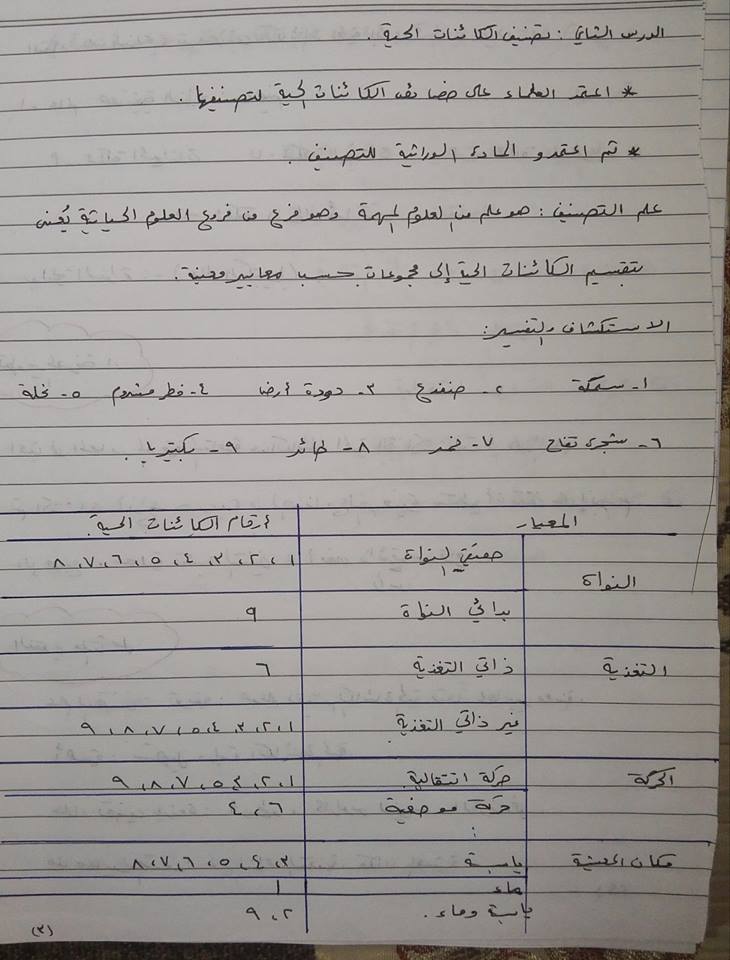 الدرس الثاني : تصنيف الكائنات الحية .
* اعتمد العلماء على خصائص الكائنات الحية لتصنيفها .
* تم اعتمدو المادة الوراثية للتصنيف .
علم التصنيف : هو علم من العلوم المهمة وهو فرع من فروع العلوم الحياتية يُعنى
بتقسيم الكائنات الحية إلى مجموعات حسب معايير معينة .
الاستكشاف والتفسير :
١- سمكة ٢- ضفدع ٣- دودة أرض ٤- فطر مشروم ٥- نحلة
٦- شجرة تفاح ٧- نمر ٨- طائر ٩- بكتيريا .
المعيار أرقام الكائنات الحية
النواة حقيقي النواة ١، ٢، ٣، ٤، ٥، ٦، ٧، ٨
بدائي النواة ٩
التغذية ذاتي التغذية ٦
غير ذاتي التغذية ١، ٢، ٣، ٤، ٥، ٧، ٨، ٩
الحركة حركة انتقالية ١، ٢، ٣، ٥، ٧، ٨، ٩
حركة موضعية ٦، ٤
مكان المعيشة يابسة ٣، ٤، ٥، ٦، ٧، ٨
ماء ١
يابسة وماء . ٢، ٩
(٣)